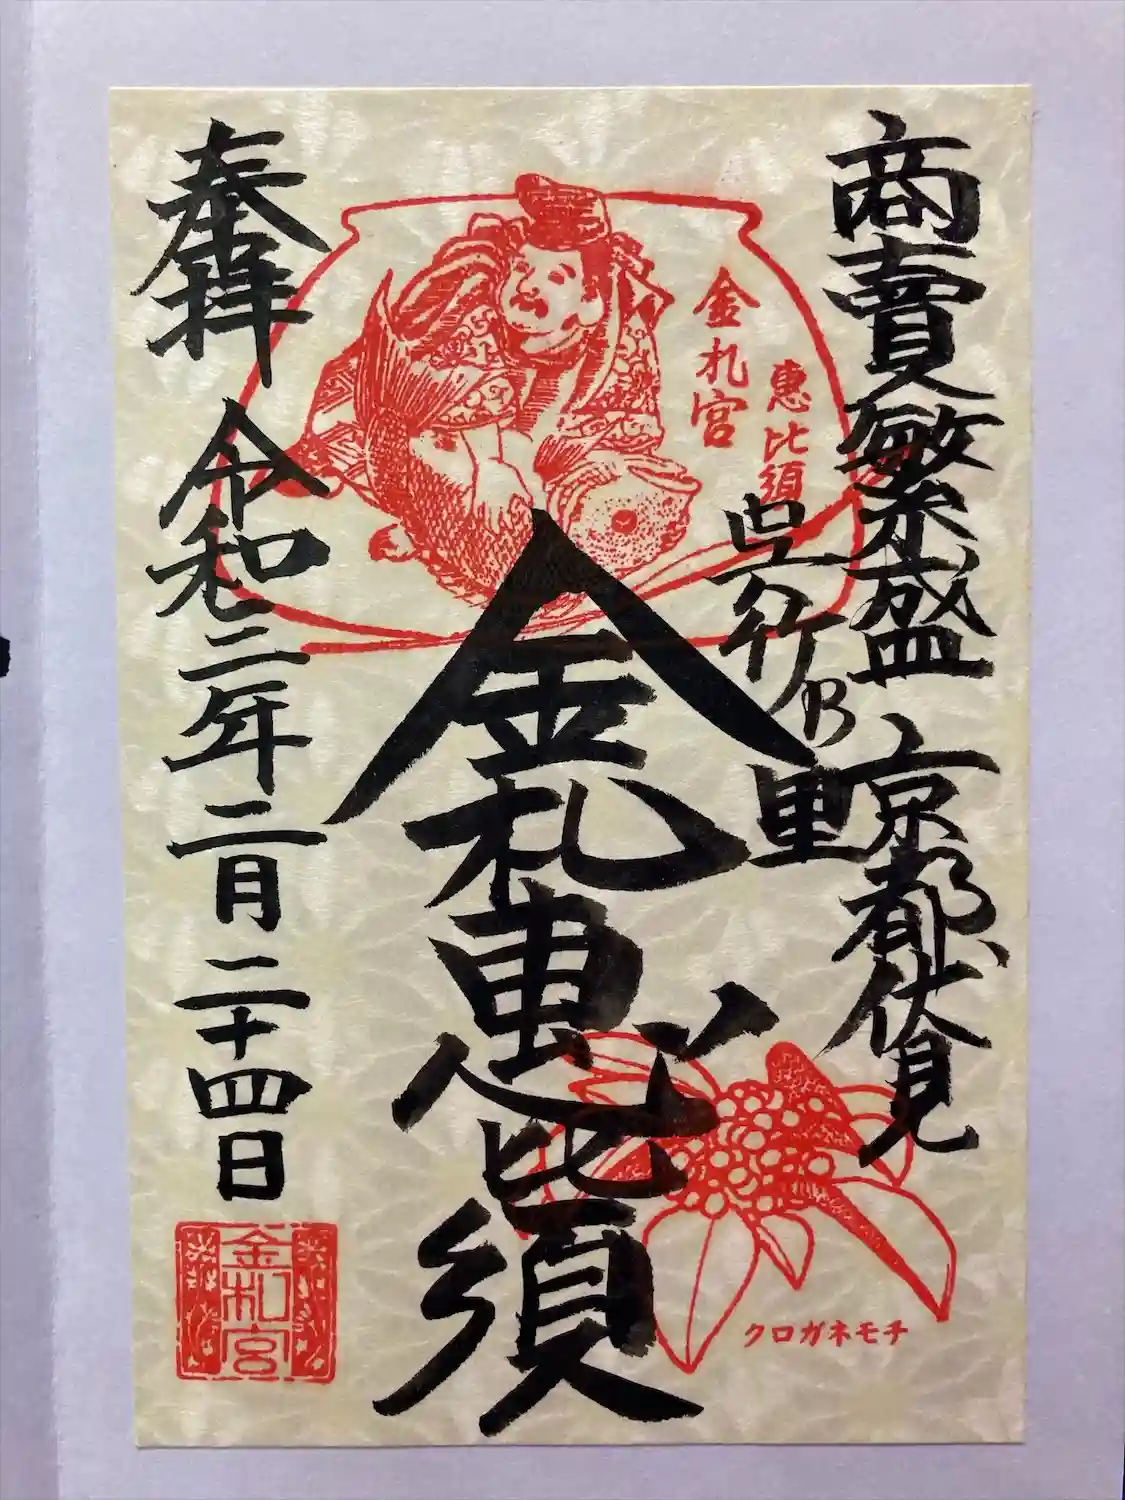 商賣繁盛 京都伏見
呉竹の里
金札宮
恵比須
金札恵比須
奉拝 令和二年二月二十四日
金札宮
クロガネモチ